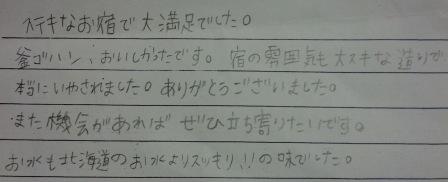 ステキなお宿で大満足でした。
釜ゴハン、おいしかったです。宿の雰囲気も大スキな造りで
本当にいやされました。ありがとうございました。
また機会があれば ぜひ立ち寄りたいです。
お水も北海道のお水よりスッキリ!!の味でした。